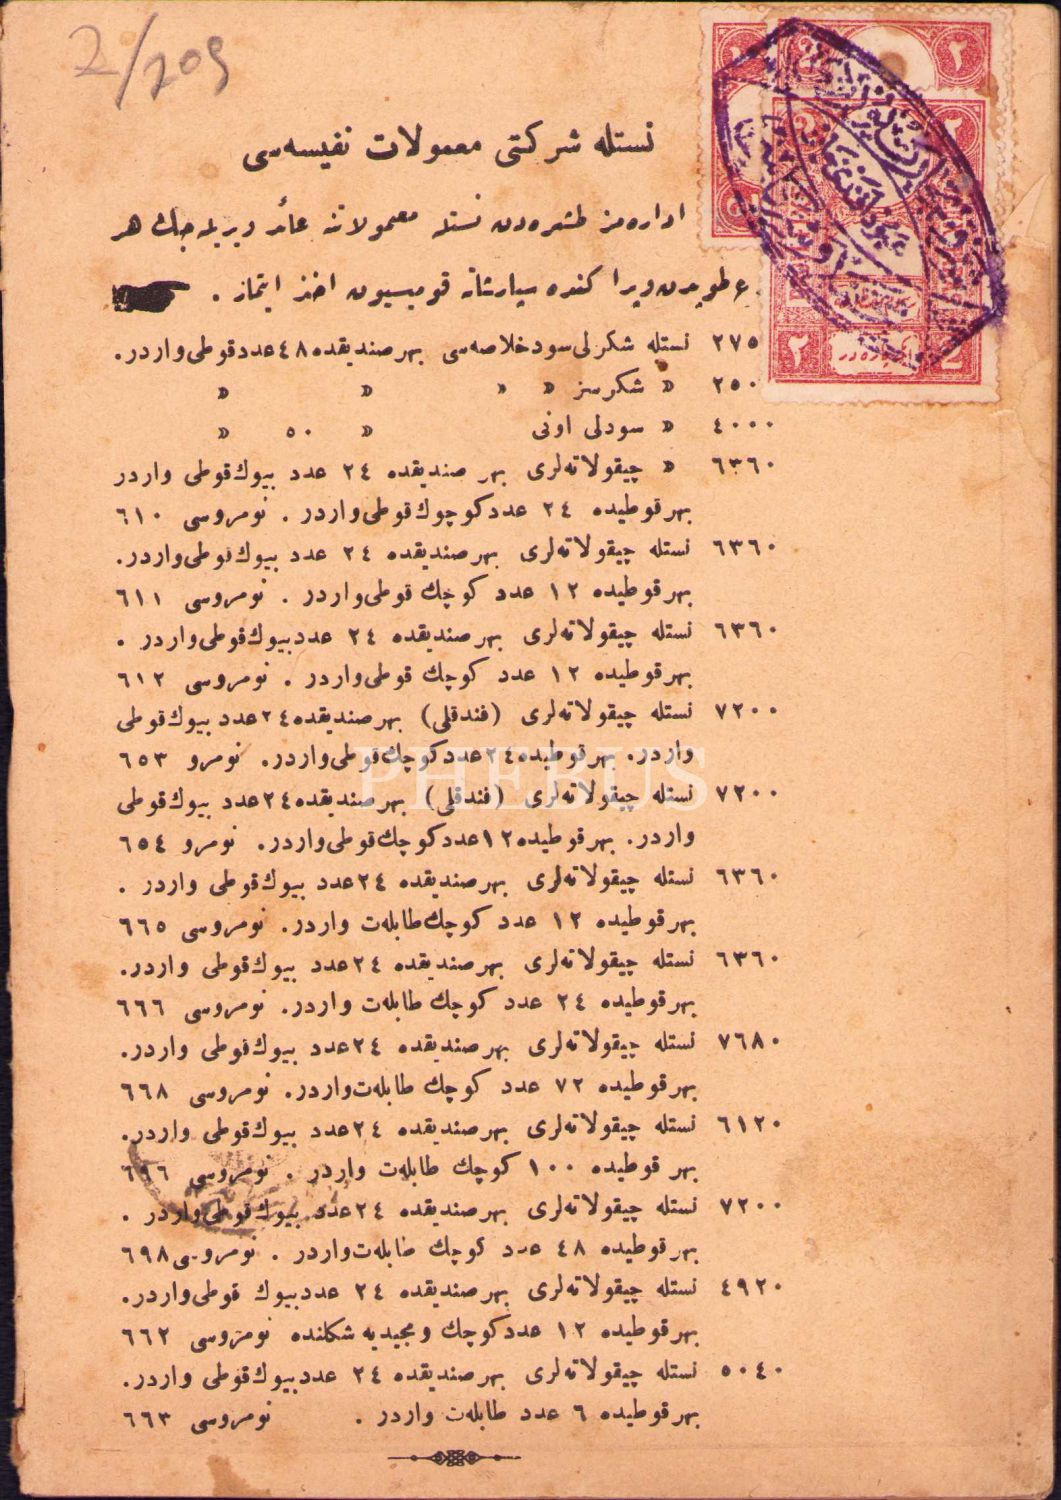 2/209
نستله شركتى معمولات نفيسه‌سى
اداره‌مز طشره‌دن نستله معمولاتنه عائد ويريله‌جك هر
سپارشاته قوميسيون اخذ ايتماز .
٢٧٥٠ نستله شكرلى سود خلاصه‌سى بهر صنديقده ٤٨ عدد قوطى واردر.
٢٥٠٠ » شكرسز » » » »
٤٠٠٠ » سودلى اونى » ٥٠ »
٦٣٦٠ » چيقولاته‌لرى بهر صنديقده ٢٤ عدد بيوك قوطى واردر
بهر قوطيده ٢٤ عدد كوچوك قوطى واردر . نومروسى ٦١٠
٦٣٦٠ نستله چيقولاته‌لرى بهر صنديقده ٢٤ عدد بيوك قوطى واردر.
بهر قوطيده ١٢ عدد كوچك قوطى واردر . نومروسى ٦١١
٦٣٦٠ نستله چيقولاته‌لرى بهر صنديقده ٢٤ عدد بيوك قوطى واردر .
بهر قوطيده ١٢ عدد كوچك قوطى واردر . نومروسى ٦١٢
٧٢٠٠ نستله چيقولاته‌لرى (فندقلى) بهر صنديقده ٢٤ عدد بيوك قوطى
واردر. بهر قوطيده ٢٤ عدد كوچك قوطى واردر. نومرو ٦٥٣
PHEBUS
٧٢٠٠ نستله چيقولاته‌لرى (فندقلى) بهر صنديقده ٢٤ عدد بيوك قوطى
واردر. بهر قوطيده ١٢ عدد كوچك قوطى واردر. نومرو ٦٥٤
٦٣٦٠ نستله چيقولاته‌لرى بهر صنديقده ٢٤ عدد بيوك قوطى واردر .
بهر قوطيده ١٢ عدد كوچك طابله‌ت واردر. نومروسى ٦٦٥
٦٣٦٠ نستله چيقولاته‌لرى بهر صنديقده ٢٤ عدد بيوك قوطى واردر.
بهر قوطيده ٢٤ عدد كوچك طابله‌ت واردر. نومروسى ٦٦٦
٧٦٨٠ نستله چيقولاته‌لرى بهر صنديقده ٢٤ عدد بيوك قوطى واردر.
بهر قوطيده ٧٢ عدد كوچك طابله‌ت واردر. نومروسى ٦٦٨
٦١٢٠ نستله چيقولاته‌لرى بهر صنديقده ٢٤ عدد بيوك قوطى واردر.
بهر قوطيده ١٠٠ كوچك طابله‌ت واردر . نومروسى ٦٩٦
٧٢٠٠ نستله چيقولاته‌لرى بهر صنديقده ٢٤ عدد بيوك قوطى واردر .
بهر قوطيده ٤٨ عدد كوچك طابله‌ت واردر . نومروسى ٦٩٨
٤٩٢٠ نستله چيقولاته‌لرى بهر صنديقده ٢٤ عدد بيوك قوطى واردر.
بهر قوطيده ١٢ عدد كوچك ومجيديه شكلنده نومروسى ٦٦٢
٥٠٤٠ نستله چيقولاته‌لرى بهر صنديقده ٢٤ عدد بيوك قوطى واردر.
بهر قوطيده ٦ عدد طابله‌ت واردر . نومروسى ٦٦٣